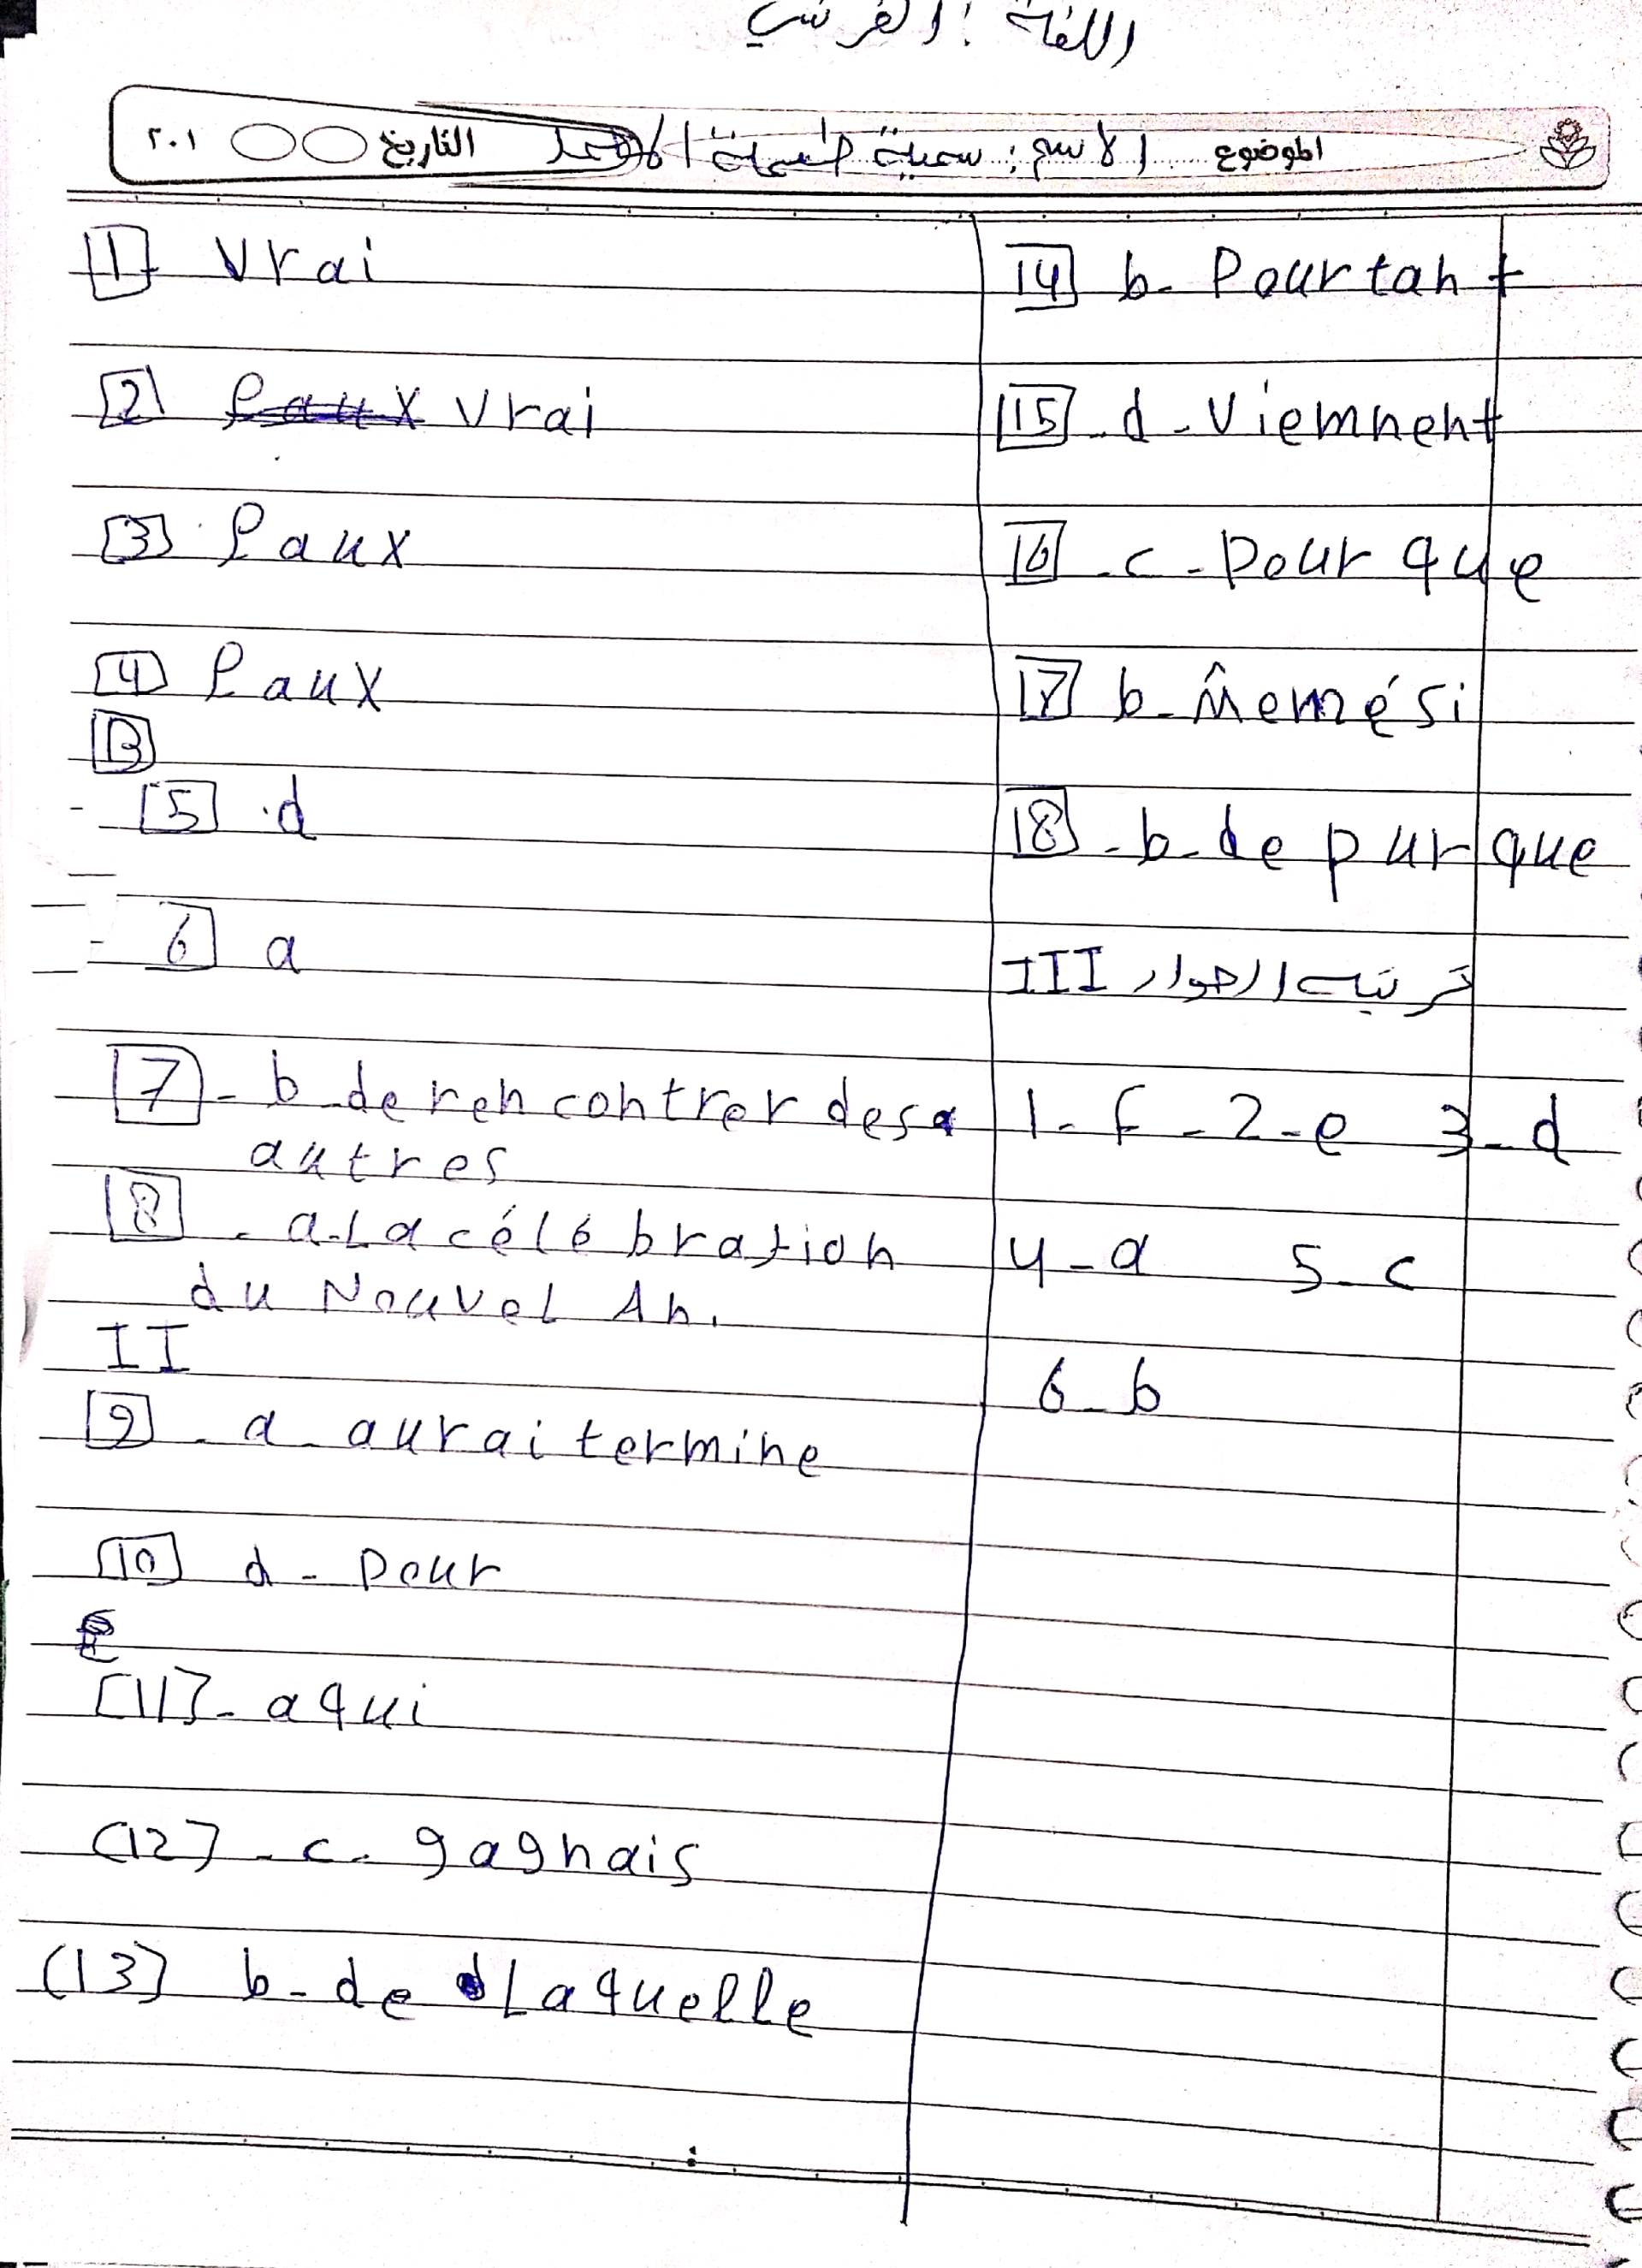 اللغة : الفرنسي
الموضوع الاسم : سمية التاريخ ٢٠١
[1] Vrai
[2] faux Vrai
[3] faux
[4] faux
[B]
- [5] . d
- [6] a
[7] - b de rencontrer des
autres
[8] - a - La célébration
du Nouvel An.
II
[9] - a - aurai termine
[10] d - Pour
[11] - a qui
(12] - c - gagnais
(13] b - de Laquelle
[14] b - Pourtant
[15] - d - Viemnent
[16] - c - Pour que
[17] b - m̂emési
[18] - b - de pur que
III ترتيب الحوار
1 - f - 2 - e 3 - d
4 - a 5 - c
6 - b